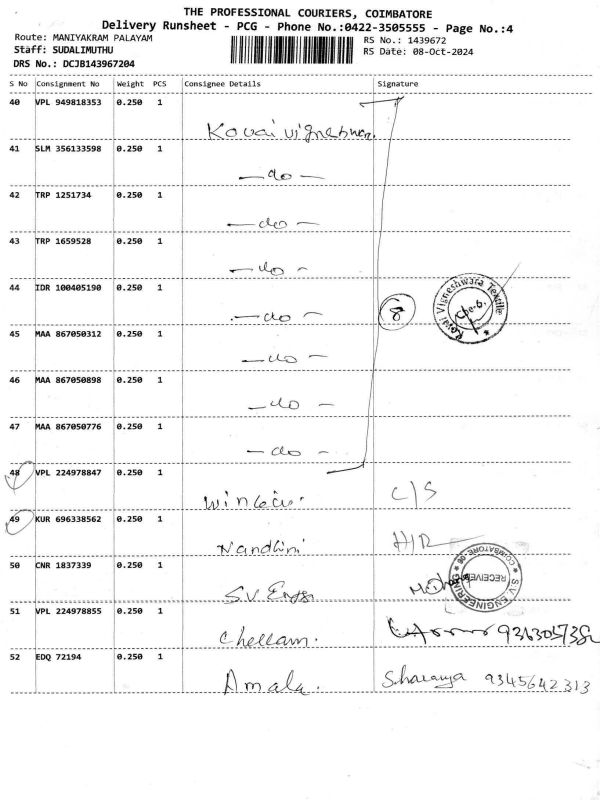 THE PROFESSIONAL COURIERS, COIMBATORE
Delivery Runsheet - PCG - Phone No.:0422-3505555 - Page No.:4
Route: MANIYAKRAM PALAYAM
Staff: SUDALIMUTHU
DRS No.: DCJB143967204
RS No.: 1439672
RS Date: 08-Oct-2024
S No Consignment No Weight PCS Consignee Details Signature
40 VPL 949818353 0.250 1
Kovai vigneshwar.
41 SLM 356133598 0.250 1
—do—
42 TRP 1251734 0.250 1
—do—
43 TRP 1659528 0.250 1
—do—
44 IDR 100405190 0.250 1
—do— 8 Kovai Vigneshwara Textile Cbe-6.
45 MAA 867050312 0.250 1
—do—
46 MAA 867050898 0.250 1
—do—
47 MAA 867050776 0.250 1
—do—
48 VPL 224978847 0.250 1
C/S
49 KUR 696338562 0.250 1
Nandhini H/R
50 CNR 1837339 0.250 1
S.V. Engg S.V. ENGINEERING COIMBATORE-06 RECEIVED
51 VPL 224978855 0.250 1
Chellam.
52 EDQ 72194 0.250 1
Amala. Sharanya 9345642313